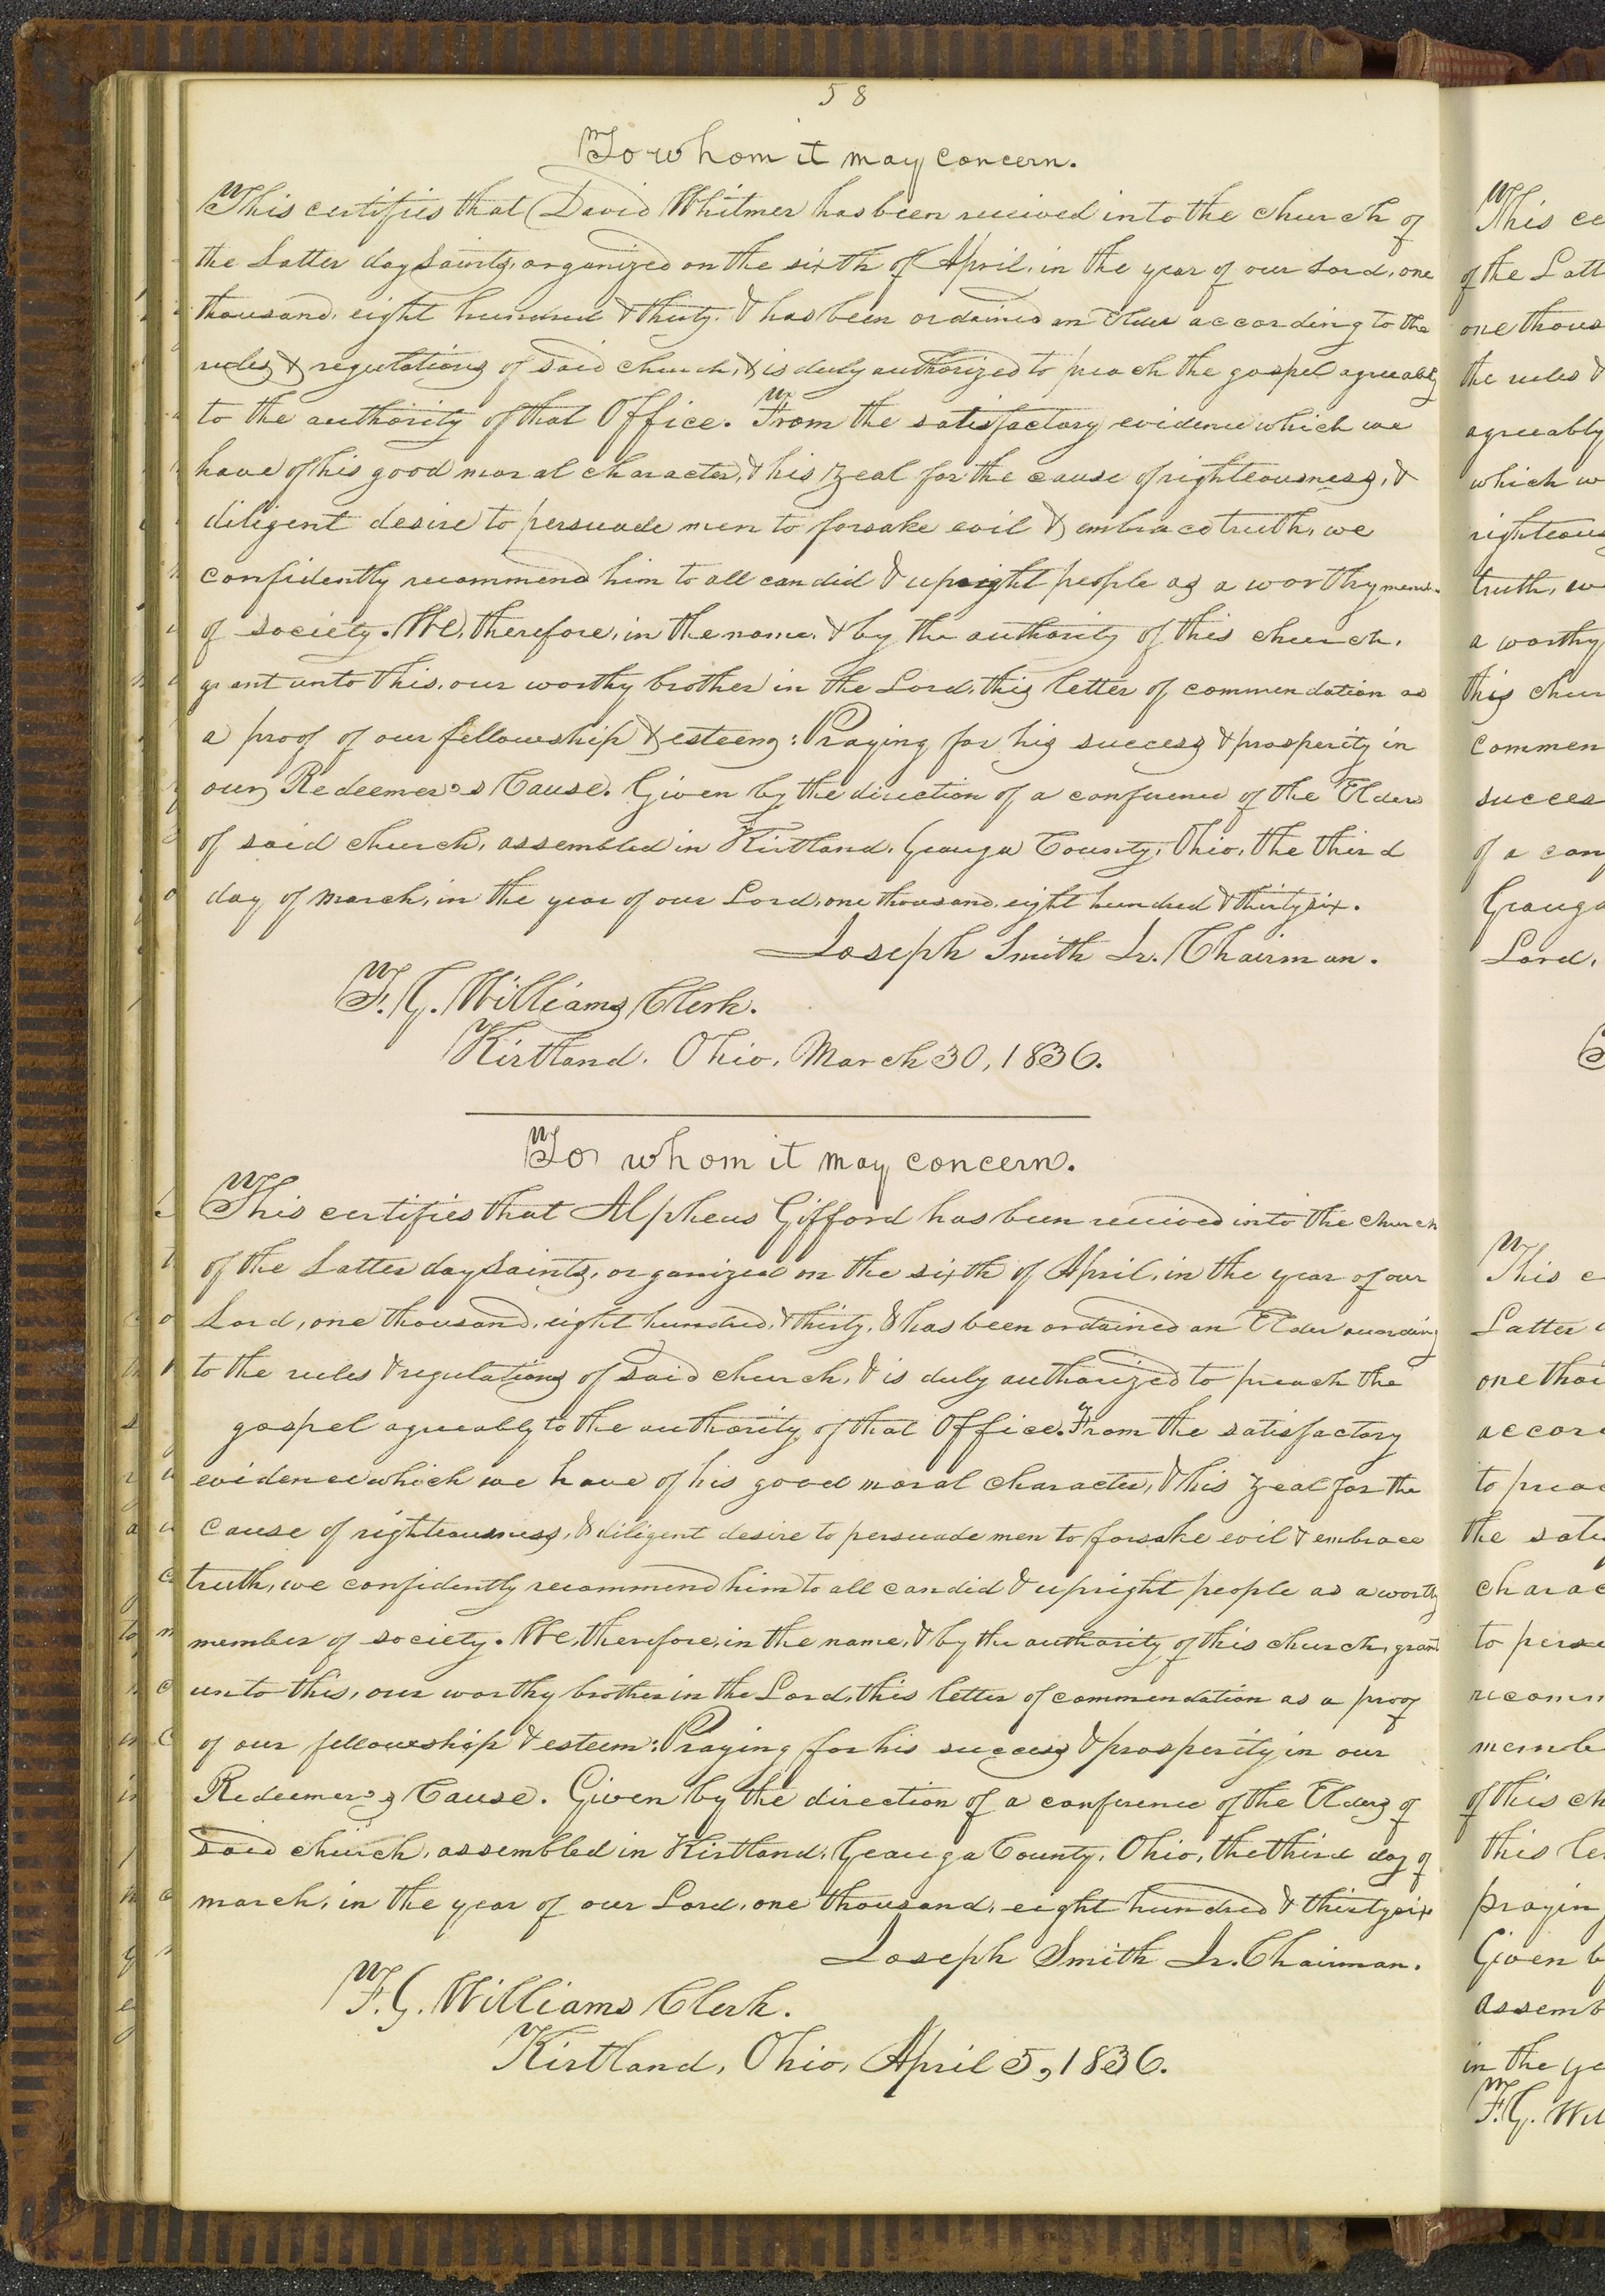 58
To whom it may concern.
This certifies that David Whitmer has been received into the church of
the Latter day Saints, organized on the sixth of April, in the year of our Lord, one
thousand, eight hundred & thirty. & has been ordained an Elder according to the
rules & regulations of said church, & is duly authorized to preach the gospel agreeably
to the authority of that Office. From the satisfactory evidence which we
have of his good moral character, & his zeal for the cause of righteousness, &
diligent desire to persuade men to forsake evil & embrace truth, we
confidently recommend him to all candid & upright people as a worthy mem.
of society. We, therefore, in the name, & by the authority of this church,
grant unto this, our worthy brother in the Lord, this letter of commendation as
a proof of our fellowship & esteem: Praying for his success & prosperity in
our Redeemer's Cause. Given by the direction of a conference of the Elders
of said church, assembled in Kirtland, Geauga County, Ohio, the third
day of march, in the year of our Lord, one thousand, eight hundred & thirty six.
Joseph Smith Jr. Chairman.
F. G. Williams Clerk.
Kirtland, Ohio, March 30, 1836.
To whom it may concern.
This certifies that Alpheus Gifford has been received into the church
of the Latter day Saints, organized on the sixth of April, in the year of our
Lord, one thousand, eight hundred, & thirty, & has been ordained an Elder according
to the rules & regulations of said church, & is duly authorized to preach the
gospel agreeably to the authority of that Office. From the satisfactory
evidence which we have of his good moral character, & his zeal for the
cause of righteousness, & diligent desire to persuade men to forsake evil & embrace
truth, we confidently recommend him to all candid & upright people as a worthy
member of society. We, therefore, in the name, & by the authority of this church, grant
unto this, our worthy brother in the Lord, this letter of commendation as a proof
of our fellowship & esteem: Praying for his success & prosperity in our
Redeemer's Cause. Given by the direction of a conference of the Elders of
said church, assembled in Kirtland, Geauga County, Ohio, the third day of
march, in the year of our Lord, one thousand, eight hundred & thirty six
Joseph Smith Jr. Chairman.
F. G. Williams Clerk.
Kirtland, Ohio, April 5, 1836.
This ce
of the Latt
one thous
the rules &
agreeably
which w
righteous
truth, w
a worthy
this chur
commen
succes
of a con
Geauga
Lord,
This c
Latter
one thou
accor
to prea
the satis
charac
to persu
recomm
membe
of this ch
this le
prayin
Given b
assemb
in the ye
F. G. Wil